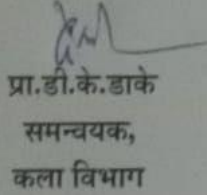 प्रा.डी.के.डाके
समन्वयक,
कला विभाग